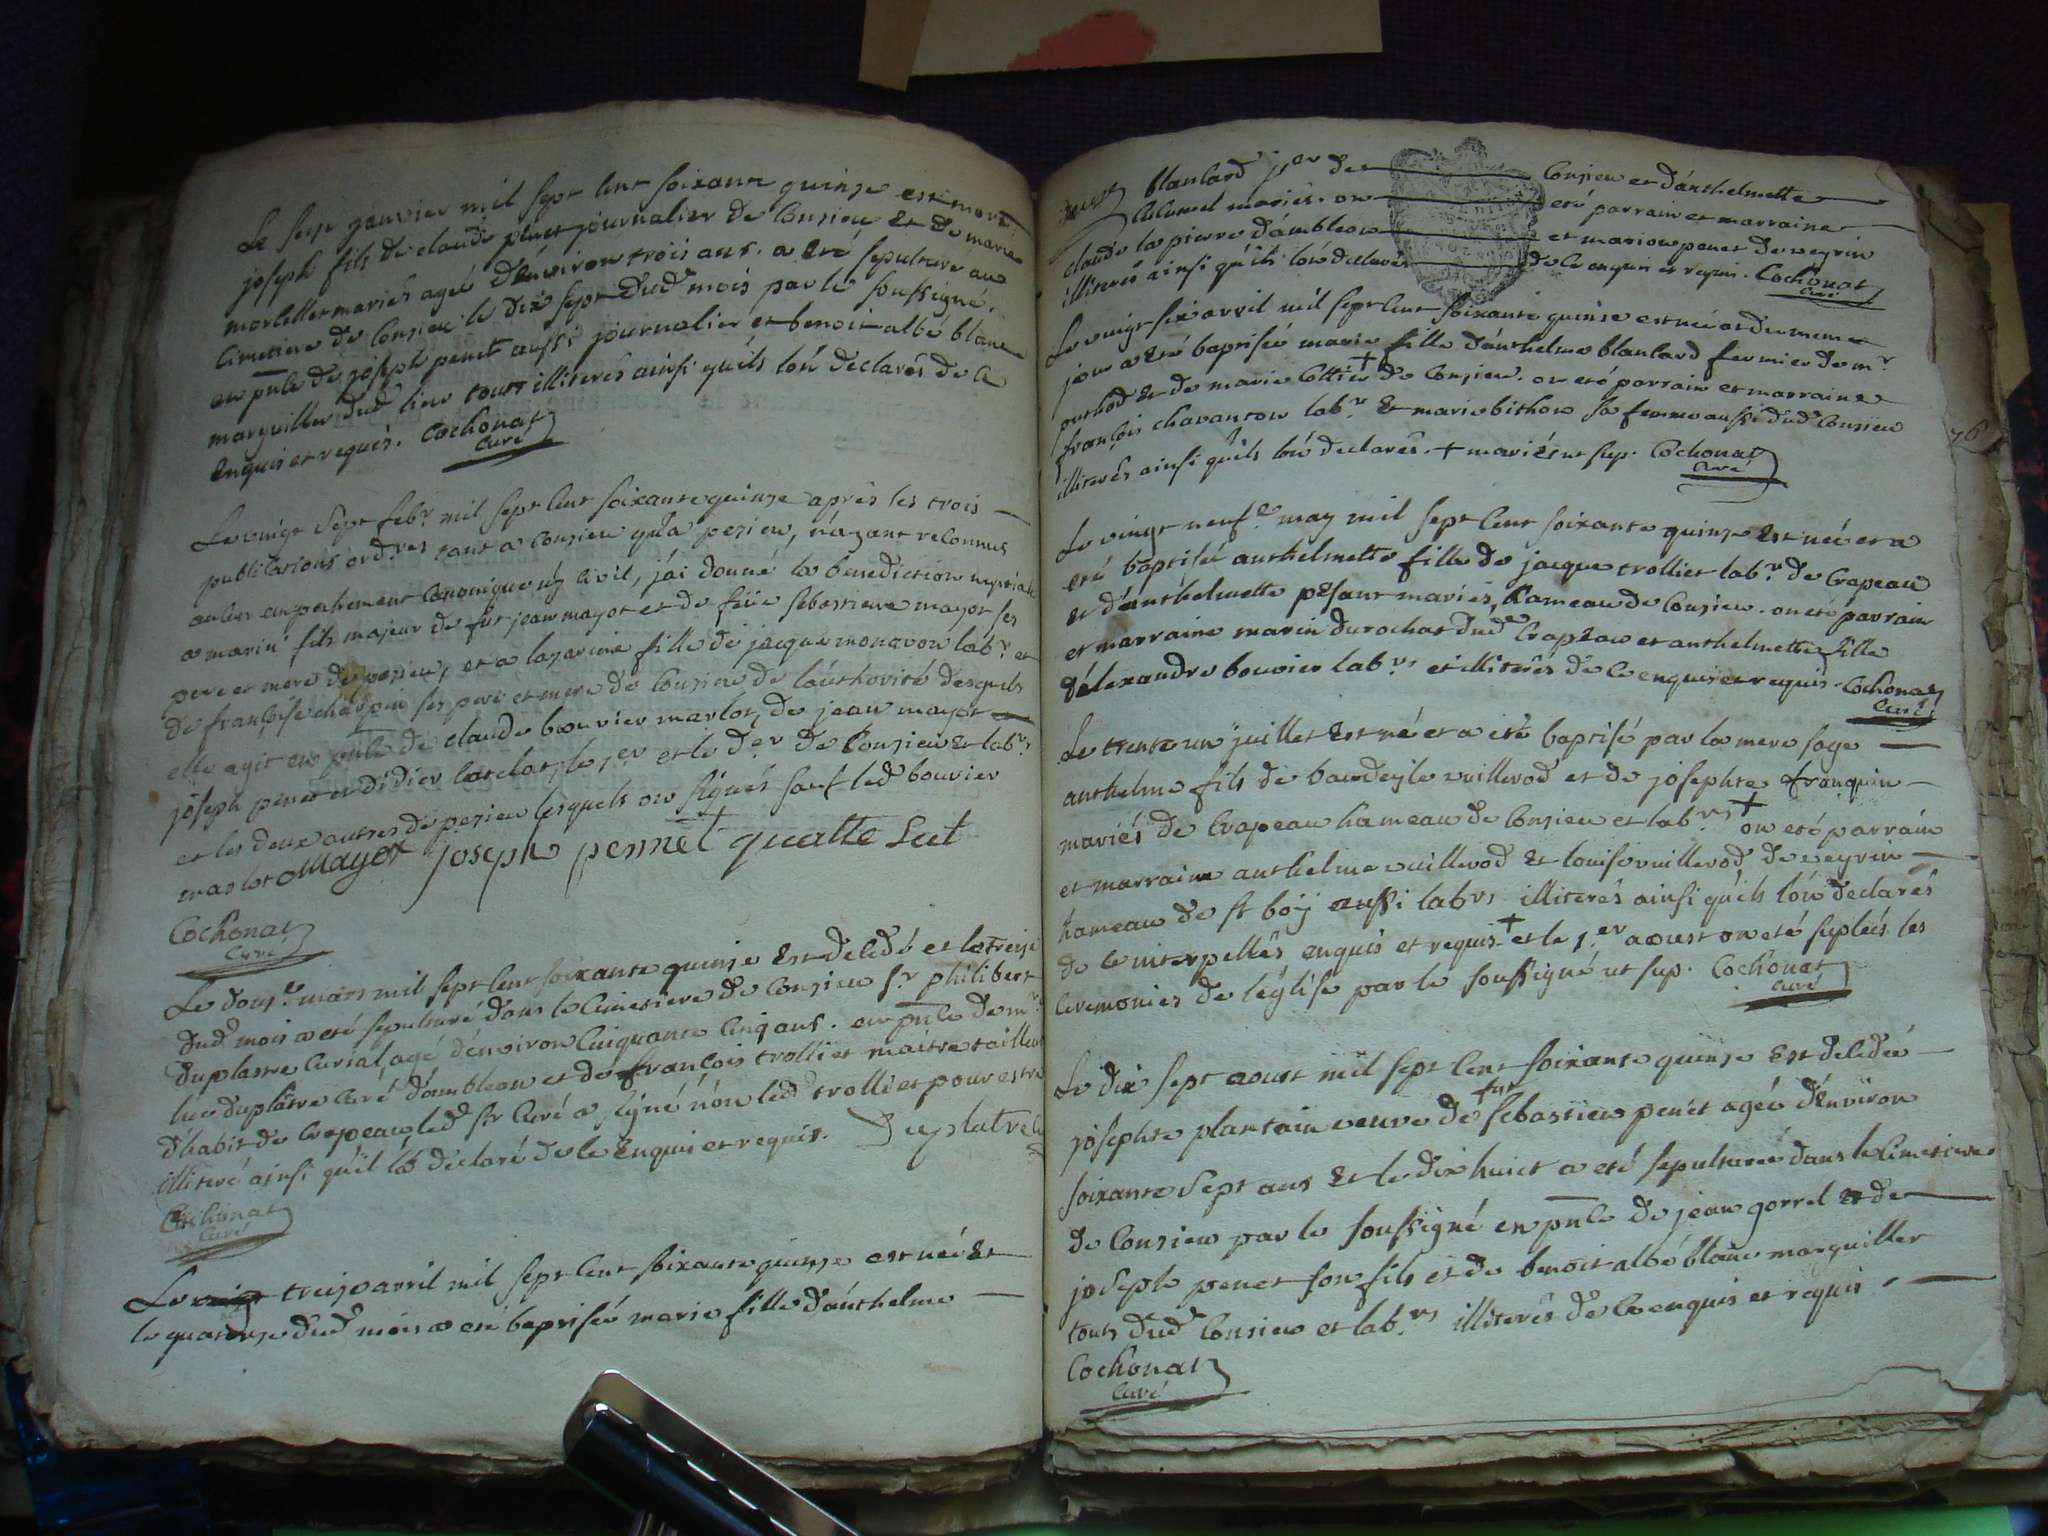 Le seize janvier mil sept cent soixante quinze est mort
joseph fils de claude penet journalier de Consieu et de marie
morcellet mariés agée d'environ trois ans. a eté sepulturé au
Cimetiere de Consieu le dix sept dud mois par le soussigné,
en pnce de joseph penet aussi journalier et benoit albé blanc
marguillier dud lieu touts illiterés ainsi qu'ils l'on declarés de ce
enquis et requis. Cochonat
Curé
Le vingt sept febr mil sept cent soixante quinze après les trois
publications ordres tant a Consieu qu'a pezieu, n'ayant reconnus
aucun empechement canonique ny civil, j'ai donné la benediction nuptiale
a marin fils majeur de fut jean mayot et de füe sebastiene mayot ses
pere et mere de pezieu, et a lazarine fille de jacque monavon labr et
de françoise charpin ses pere et mere de Consieu de l'authorité desquels
elle agit en pnce de claude bouvier marlot, de jean mayot
joseph penet et didier lat clat, le 1er et le der de Consieu et labrs
et les deux autres de pezieu lesquels on signés sauf led bouvier
marlot Mayot joseph pennet
Cochonat
Curé
Le douze mars mil sept cent soixante quinze est decedé et le treize
dud mois a eté sepulturé dans le Cimetiere de Consieu sr philibert
duplastre Curial, agé d'environ Cinquante Cinq ans. en pnce de mre
luc duplâtre Curé d'ambleon et de françois trolliet maitre tailleur
d'habit de Crapeau, led sr Curé a signé non led trolliet pour estre
illiteré ainsi qu'il l'a declaré de ce enquis et requis. Duplatre
Cochonat
Curé
Le treize avril mil sept cent soixante quinze est née et
le quatorze dud mois a eté baptisée marie fille d'anthelme
blanlard jer de Consieu et d'anthelmette
mariés. on eté parrain et marraine
claude la pierre d'ambleon et marion penet de veyrin
illiterés ainsi qu'ils l'on declarés de ce enquis et requis. Cochonat
Curé
Le vingt six avril mil sept cent soixante quinze est née et de meme
jour a eté baptisée marie fille d'anthelme blanlard fermier de mr
parthod et de marie Cottier + de Consieu. on eté parrain et marraine
françois chavanton labr et marie bithon sa femme aussi dud Consieu
illiterés ainsi qu'ils l'on declarés. + mariés ut sup. Cochonat
Curé
76
Le vingt neufe may mil sept cent soixante quinze est née et a
eté baptisée anthelmette fille de jacque trolliet labr de Crapeau
et d'anthelmette pesant mariés, hameau de Consieu. on eté parrain
et marraine marin durochat dud Crapeau et anthelmette fille
d'alexandre bouvier labrs et illiterés de ce enquis et requis. Cochonat
Curé
Le trente un juillet est né et a eté baptisé par la mere sage
anthelme fils de vuillerod et de josephte franquin
mariés de Crapeau hameau de Consieu et labrs + on eté parrain
et marraine anthelme vuillerod et louise vuillerod de veyrin
hameau de st boy aussi labrs illiterés ainsi qu'ils l'on declarés
de ce interpellés enquis et requis + et le 1er aoust on eté suplées les
Ceremonies de l'église par le soussigné ut sup. Cochonat
Curé
Le dix sept aoust mil sept cent soixante quinze est decedée
josephte plantain veuve de fut sebastien penet agée d'environ
soixante sept ans et le dix huict a eté sepulturée dans le Cimetiere
de Consieu par le soussigné en pnce de jean gorrel et de
joseph penet son fils et de benoit albé blanc marguillier
touts dud Consieu et labrs illiterés de ce enquis et requis.
Cochonat
Curé